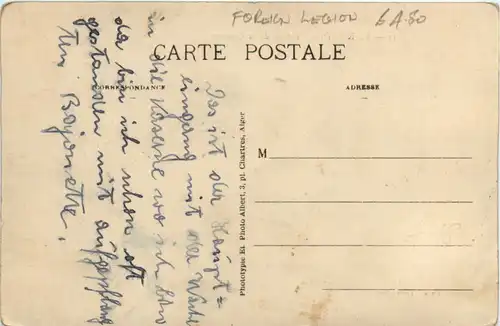 FOREIGN LEGION 6 A.80
CARTE POSTALE
CORRESPONDANCE
ADRESSE
M
Phototypie Et. Photo Albert, 3, pl. Chartres, Alger
Das ist der Haupt=
eingang mit der Wache
in die Kaserne wo ich
da bin ich schon oft
gestanden mit aufgepflanz
tem Bajonette.